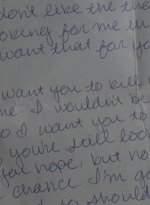 don't like the
looking for me
want that for yo
want you to kill
me I wouldn't be
so I want you to
you're still loo
you hope, but no
chance. I'm go
should